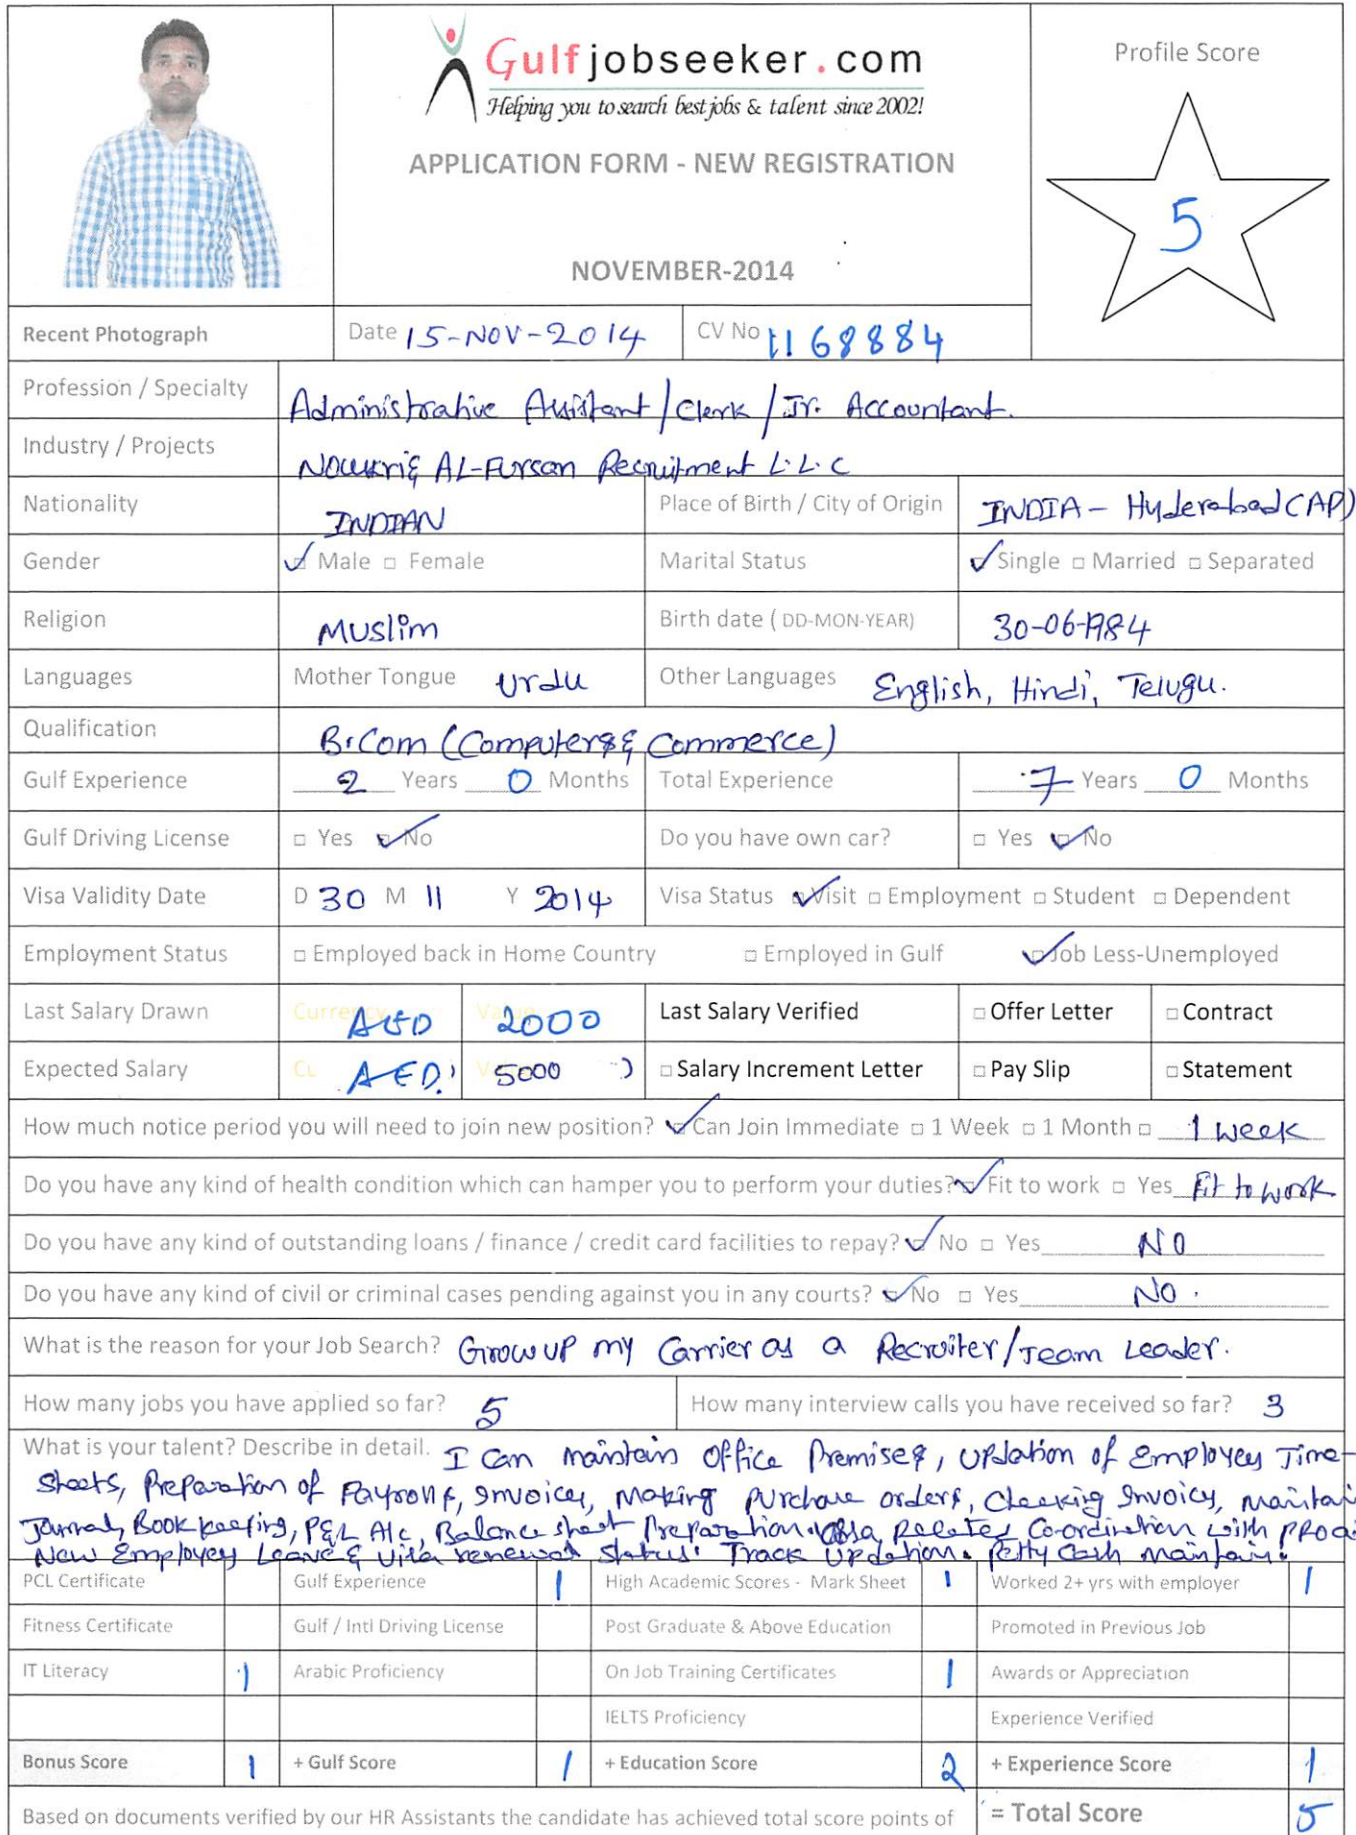 Gulfjobseeker.com
Helping you to search best jobs & talent since 2002!
APPLICATION FORM - NEW REGISTRATION
NOVEMBER-2014
Profile Score
5
Recent Photograph
Date 15-NOV-2014
CV No 1168884
Profession / Specialty Administrative Assistant/Clerk/Jr. Accountant.
Industry / Projects Nowkri & AL-Fursan Recruitment L.L.C
Nationality INDIAN Place of Birth / City of Origin INDIA - Hyderabad (AP)
Gender Male Female Marital Status Single Married Separated
Religion Muslim Birth date ( DD-MON-YEAR) 30-06-1984
Languages Mother Tongue Urdu Other Languages English, Hindi, Telugu.
Qualification B.Com (Computers & Commerce)
Gulf Experience 2 Years 0 Months Total Experience 7 Years 0 Months
Gulf Driving License Yes No Do you have own car? Yes No
Visa Validity Date D 30 M 11 Y 2014 Visa Status Visit Employment Student Dependent
Employment Status Employed back in Home Country Employed in Gulf Job Less-Unemployed
Last Salary Drawn AED 2000 Last Salary Verified Offer Letter Contract
Expected Salary AED 5000 Salary Increment Letter Pay Slip Statement
How much notice period you will need to join new position? Can Join Immediate 1 Week 1 Month 1 week
Do you have any kind of health condition which can hamper you to perform your duties? Fit to work Yes Fit to work
Do you have any kind of outstanding loans / finance / credit card facilities to repay? No Yes NO
Do you have any kind of civil or criminal cases pending against you in any courts? No Yes NO.
What is the reason for your Job Search? Grow up my Carrier as a Recruiter/Team Leader.
How many jobs you have applied so far? 5 How many interview calls you have received so far? 3
What is your talent? Describe in detail. I can maintain Office Premises, Updation of Employees Time-
Sheets, Preparation of Payrolls, Invoices, Making purchase orders, Checking Invoices, maintai
Journal, Book keeping, P&L A/c, Balance sheet Preparation. Relates Co-ordination with PRO
New Employees Leave & visa renewal status. Track Updation. Petty Cash maintain.
PCL Certificate Gulf Experience 1 High Academic Scores - Mark Sheet 1 Worked 2+ yrs with employer 1
Fitness Certificate Gulf / Intl Driving License Post Graduate & Above Education Promoted in Previous Job
IT Literacy 1 Arabic Proficiency On Job Training Certificates 1 Awards or Appreciation
IELTS Proficiency Experience Verified
Bonus Score 1 + Gulf Score 1 + Education Score 2 + Experience Score 1
Based on documents verified by our HR Assistants the candidate has achieved total score points of = Total Score 5